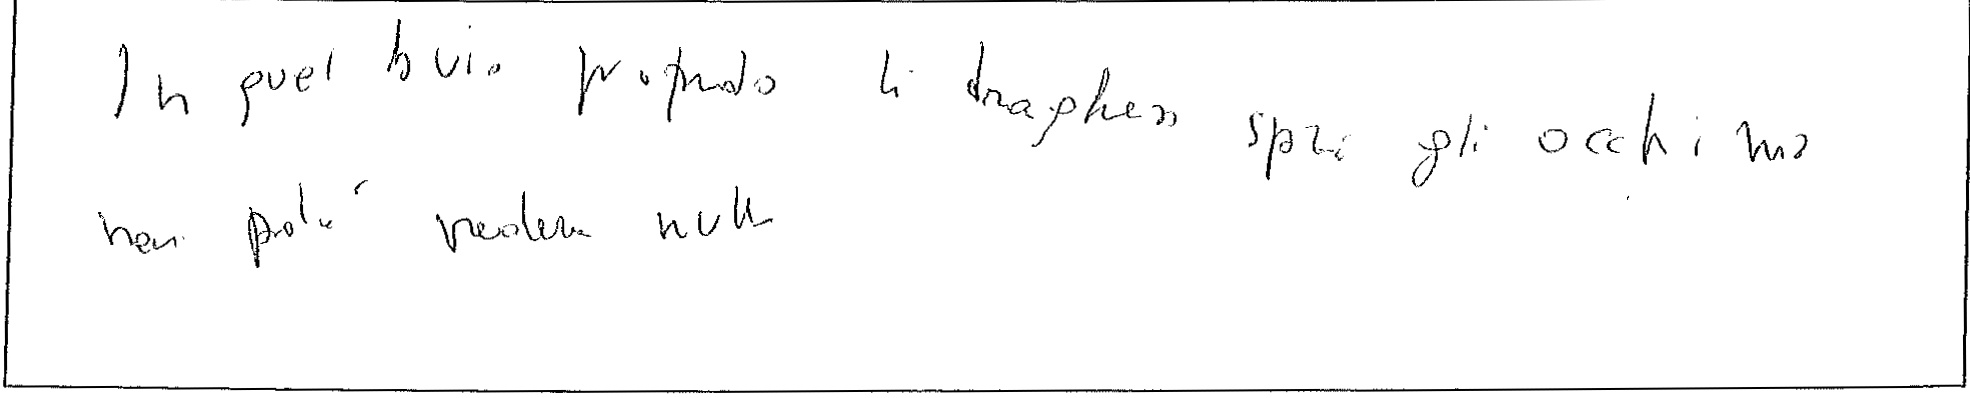 In quel buio profondo il draghetto aprì gli occhi ma
non poté vedere nulla